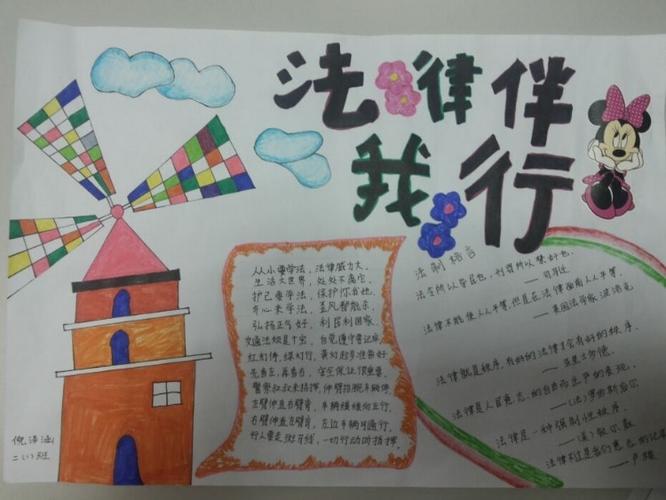 法律伴
我行
从小要学法，法律威力大。
生活大世界，处处不离它。
护己要学法，保护你我他。
齐心来学法，
弘扬正气好，利民利国家。
交通法规是个宝，自觉遵守要记牢。
红灯停，绿灯行，黄灯起步准备好。
先看左，再看右，安全保证很重要。
警察叔叔来指挥，伸臂挡腕车辆停。
左臂伸直右臂弯，车辆缓缓向左行。
右臂伸直左臂弯，左边车辆可通行。
行人要走斑马线，一切行动听指挥。
法制格言
法令所以导民也，刑罚所以禁奸也。
——司马迁
法律不能使人人平等，但是在法律面前人人平等。
——英国法学家 波洛克
法律就是秩序，有好的法律才会有好的秩序。
——亚里士多德
法律是人民意志的自由而庄严的表现。
——(法)罗伯斯庇尔
法律是一种强制性秩序。
——(美)
法律不过是我们意志的记录
——卢梭
倪
二(1)班